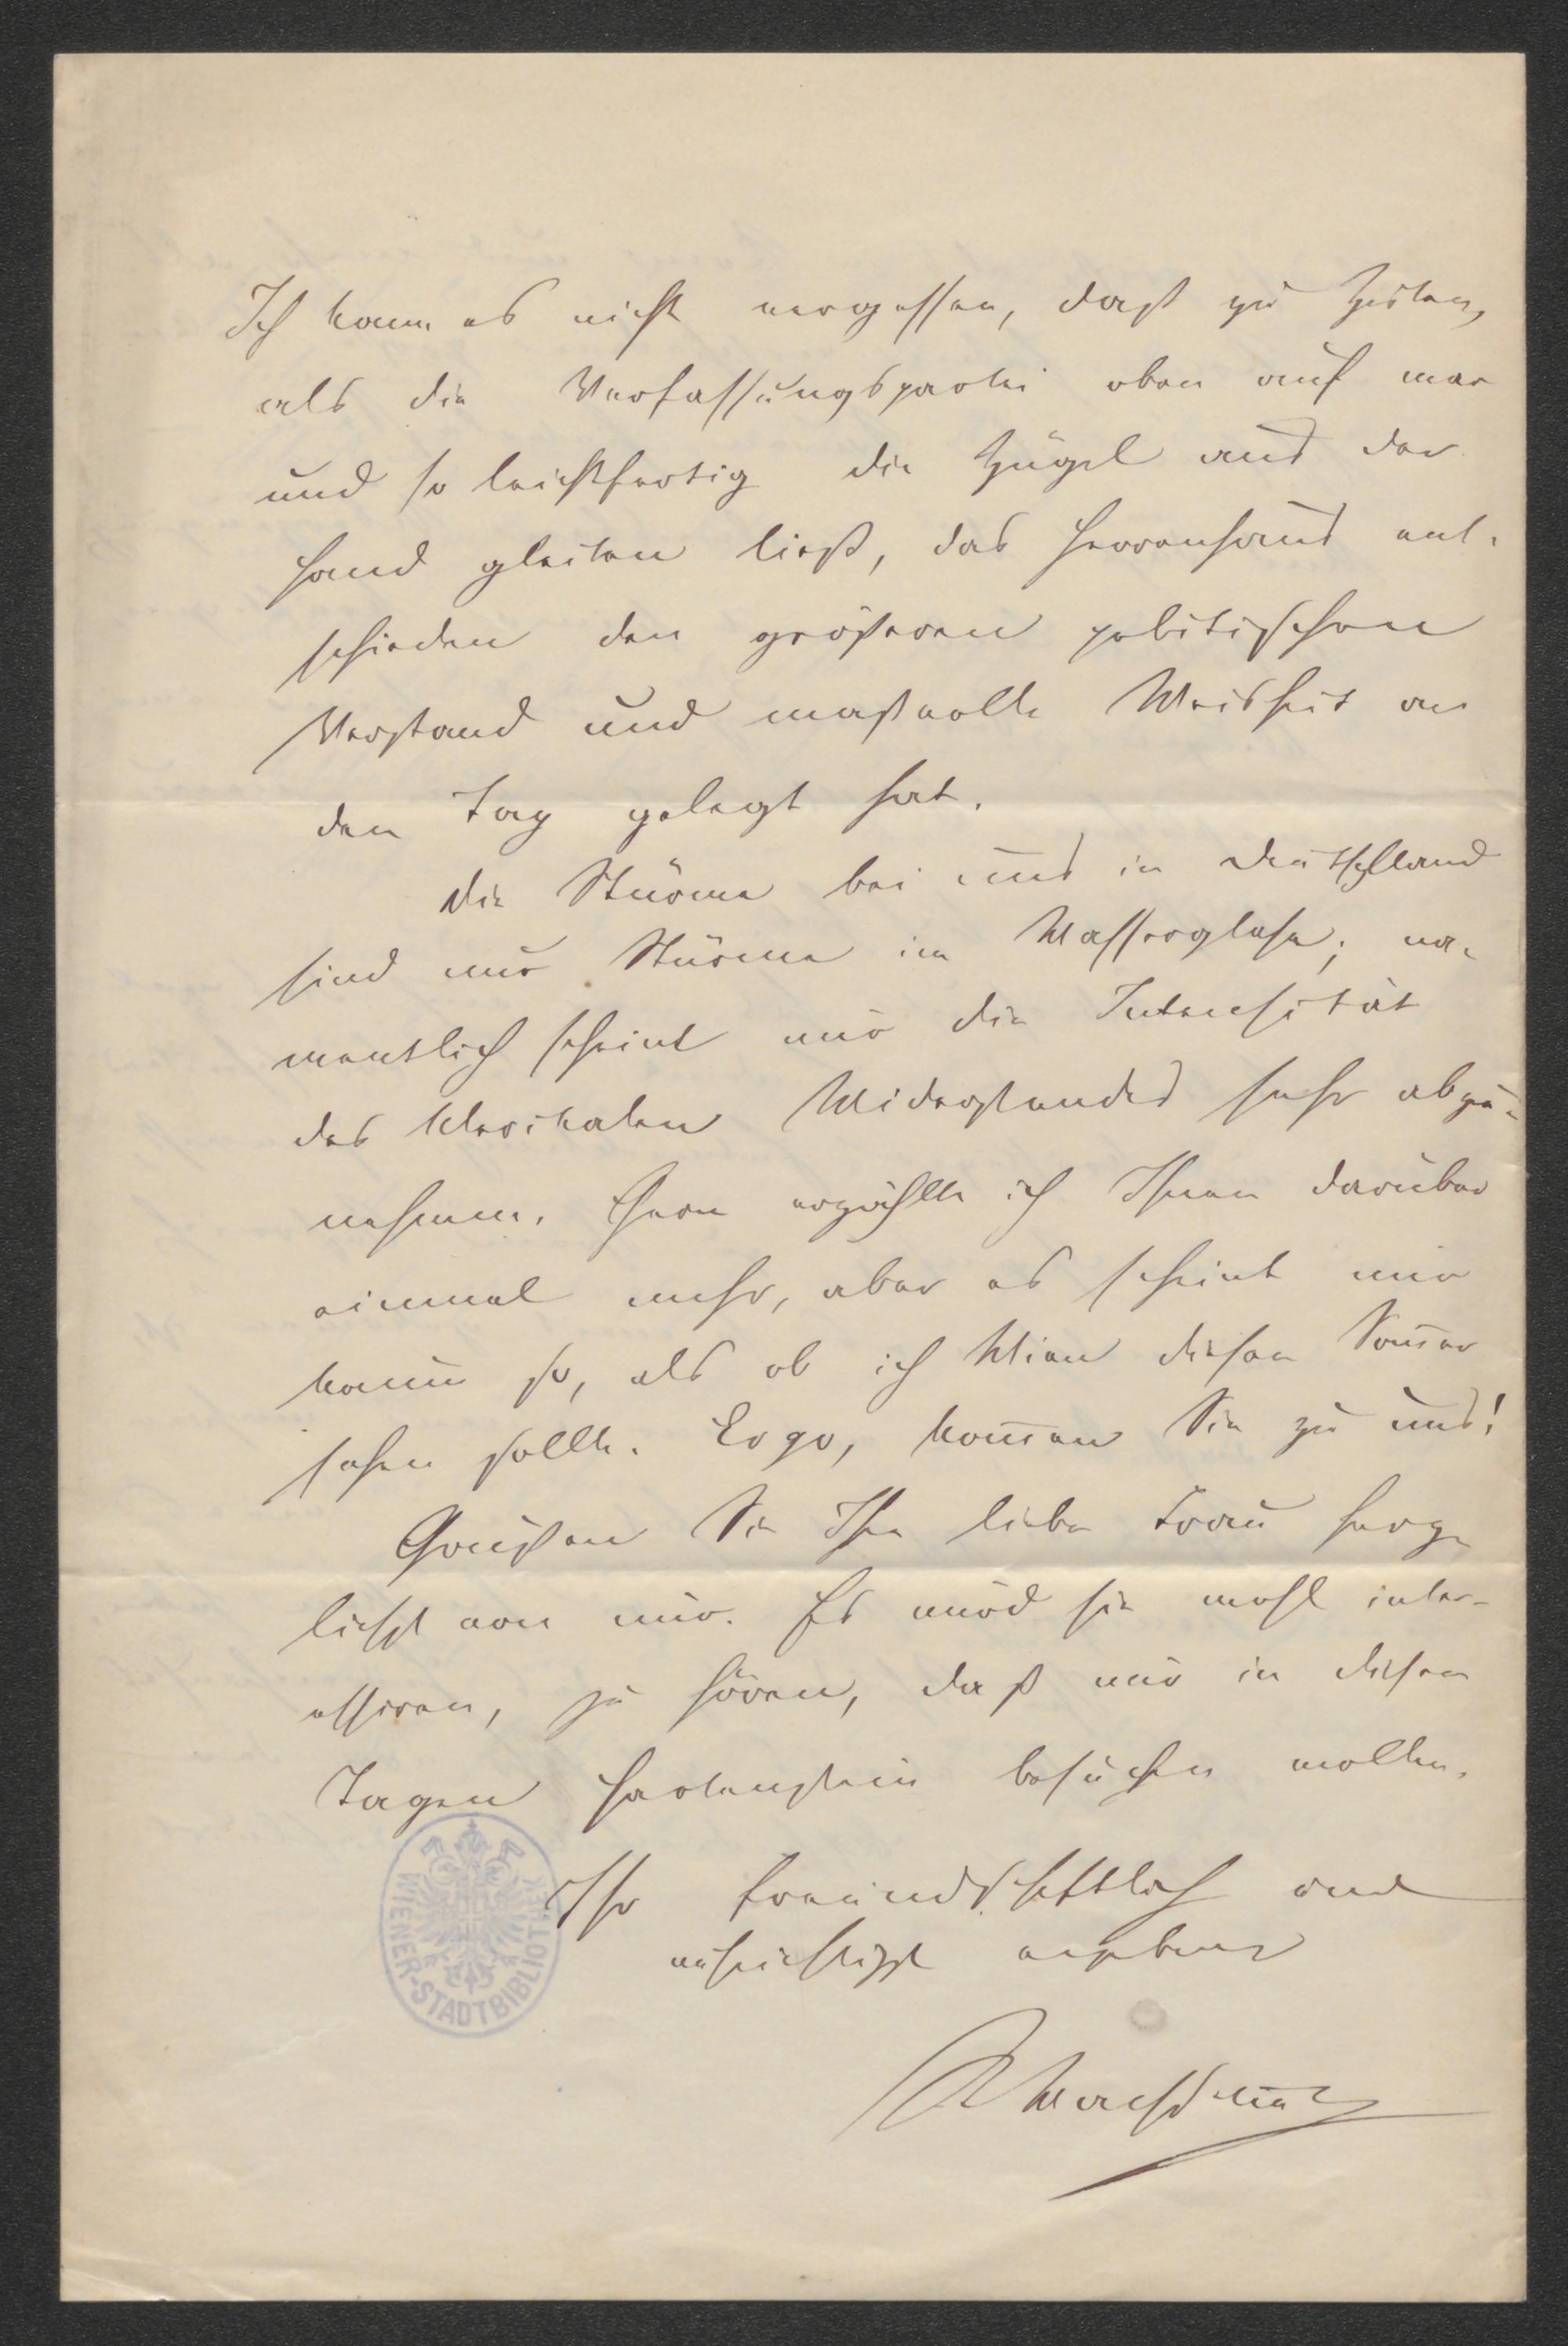 Ich kann es nicht vergessen, daß zu Zeiten,
als die Verfassungspartei oben auf war
und so leichtfertig die Zügel aus der
Hand gleiten ließ, das Herrenhaus ent-
schieden den größeren politischen
Verstand und maßvolle Weisheit an
den Tag gelegt hat.
Die Stürme bei uns in Deutschland
sind nur Stürme im Wasserglase; na-
mentlich scheint mir die Intensität
des klerikalen Widerstandes sehr abzu-
nehmen. Gern erzählte ich Ihnen darüber
einmal mehr, aber es scheint mir
kaum so, als ob ich Wien diesen Som̄er
sehen sollte. Ergo, kom̄en Sie zu uns!
Grüßen Sie Ihre liebe Frau herz-
lichst von mir. Es wird sie wohl inter-
essiren, zu hören, daß wir in diesen
Tagen Hartenstein besuchen wollen.
Ihr freundschaftlich und
aufrichtigst ergebener
Wachsmuth
WIENER-STADTBIBLIOTHEK